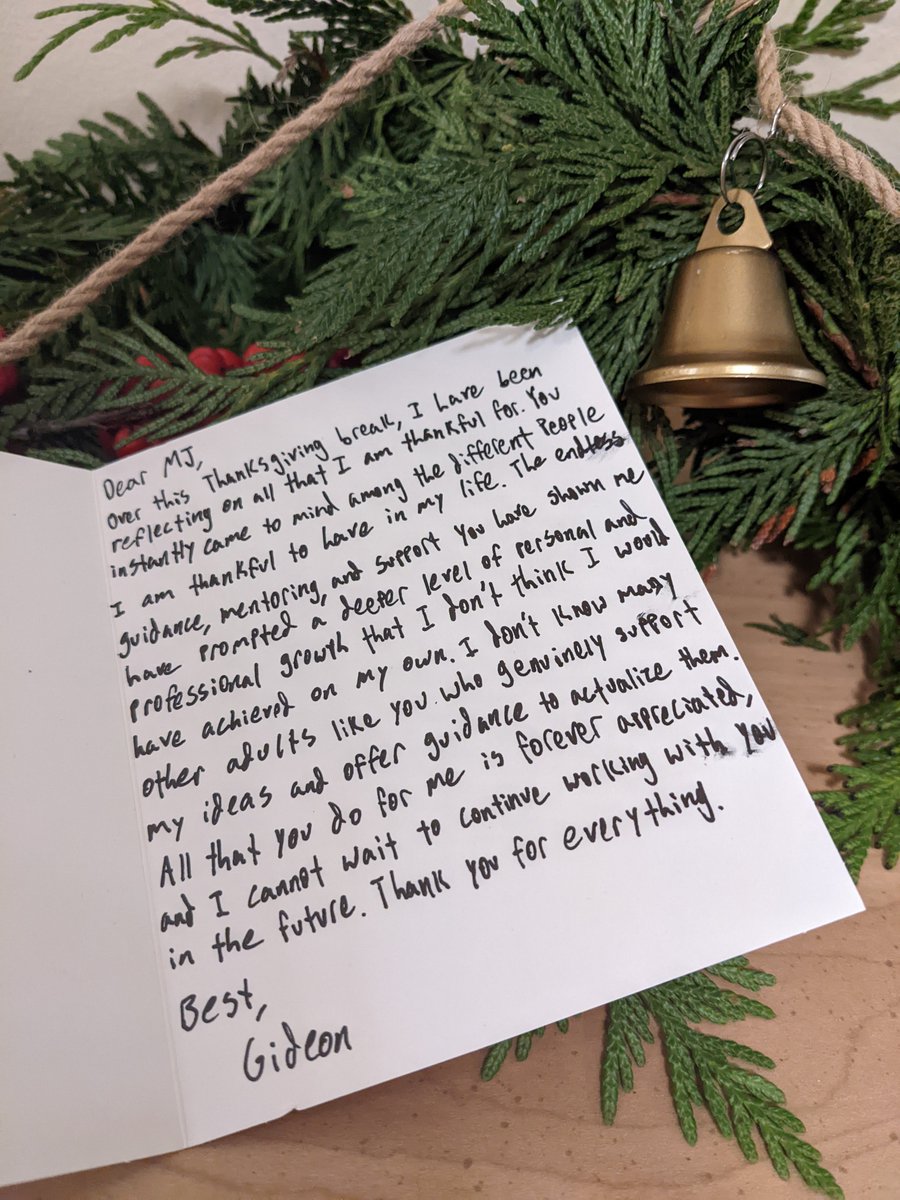 Dear MJ,
Over this Thanksgiving break, I have been
reflecting on all that I am thankful for. You
instantly came to mind among the different people
I am thankful to have in my life. The endless
guidance, mentoring, and support you have shown me
have prompted a deeper level of personal and
professional growth that I don't think I would
have achieved on my own. I don't know many
other adults like you who genuinely support
my ideas and offer guidance to actualize them.
All that you do for me is forever appreciated,
and I cannot wait to continue working with you
in the future. Thank you for everything.
Best,
Gideon